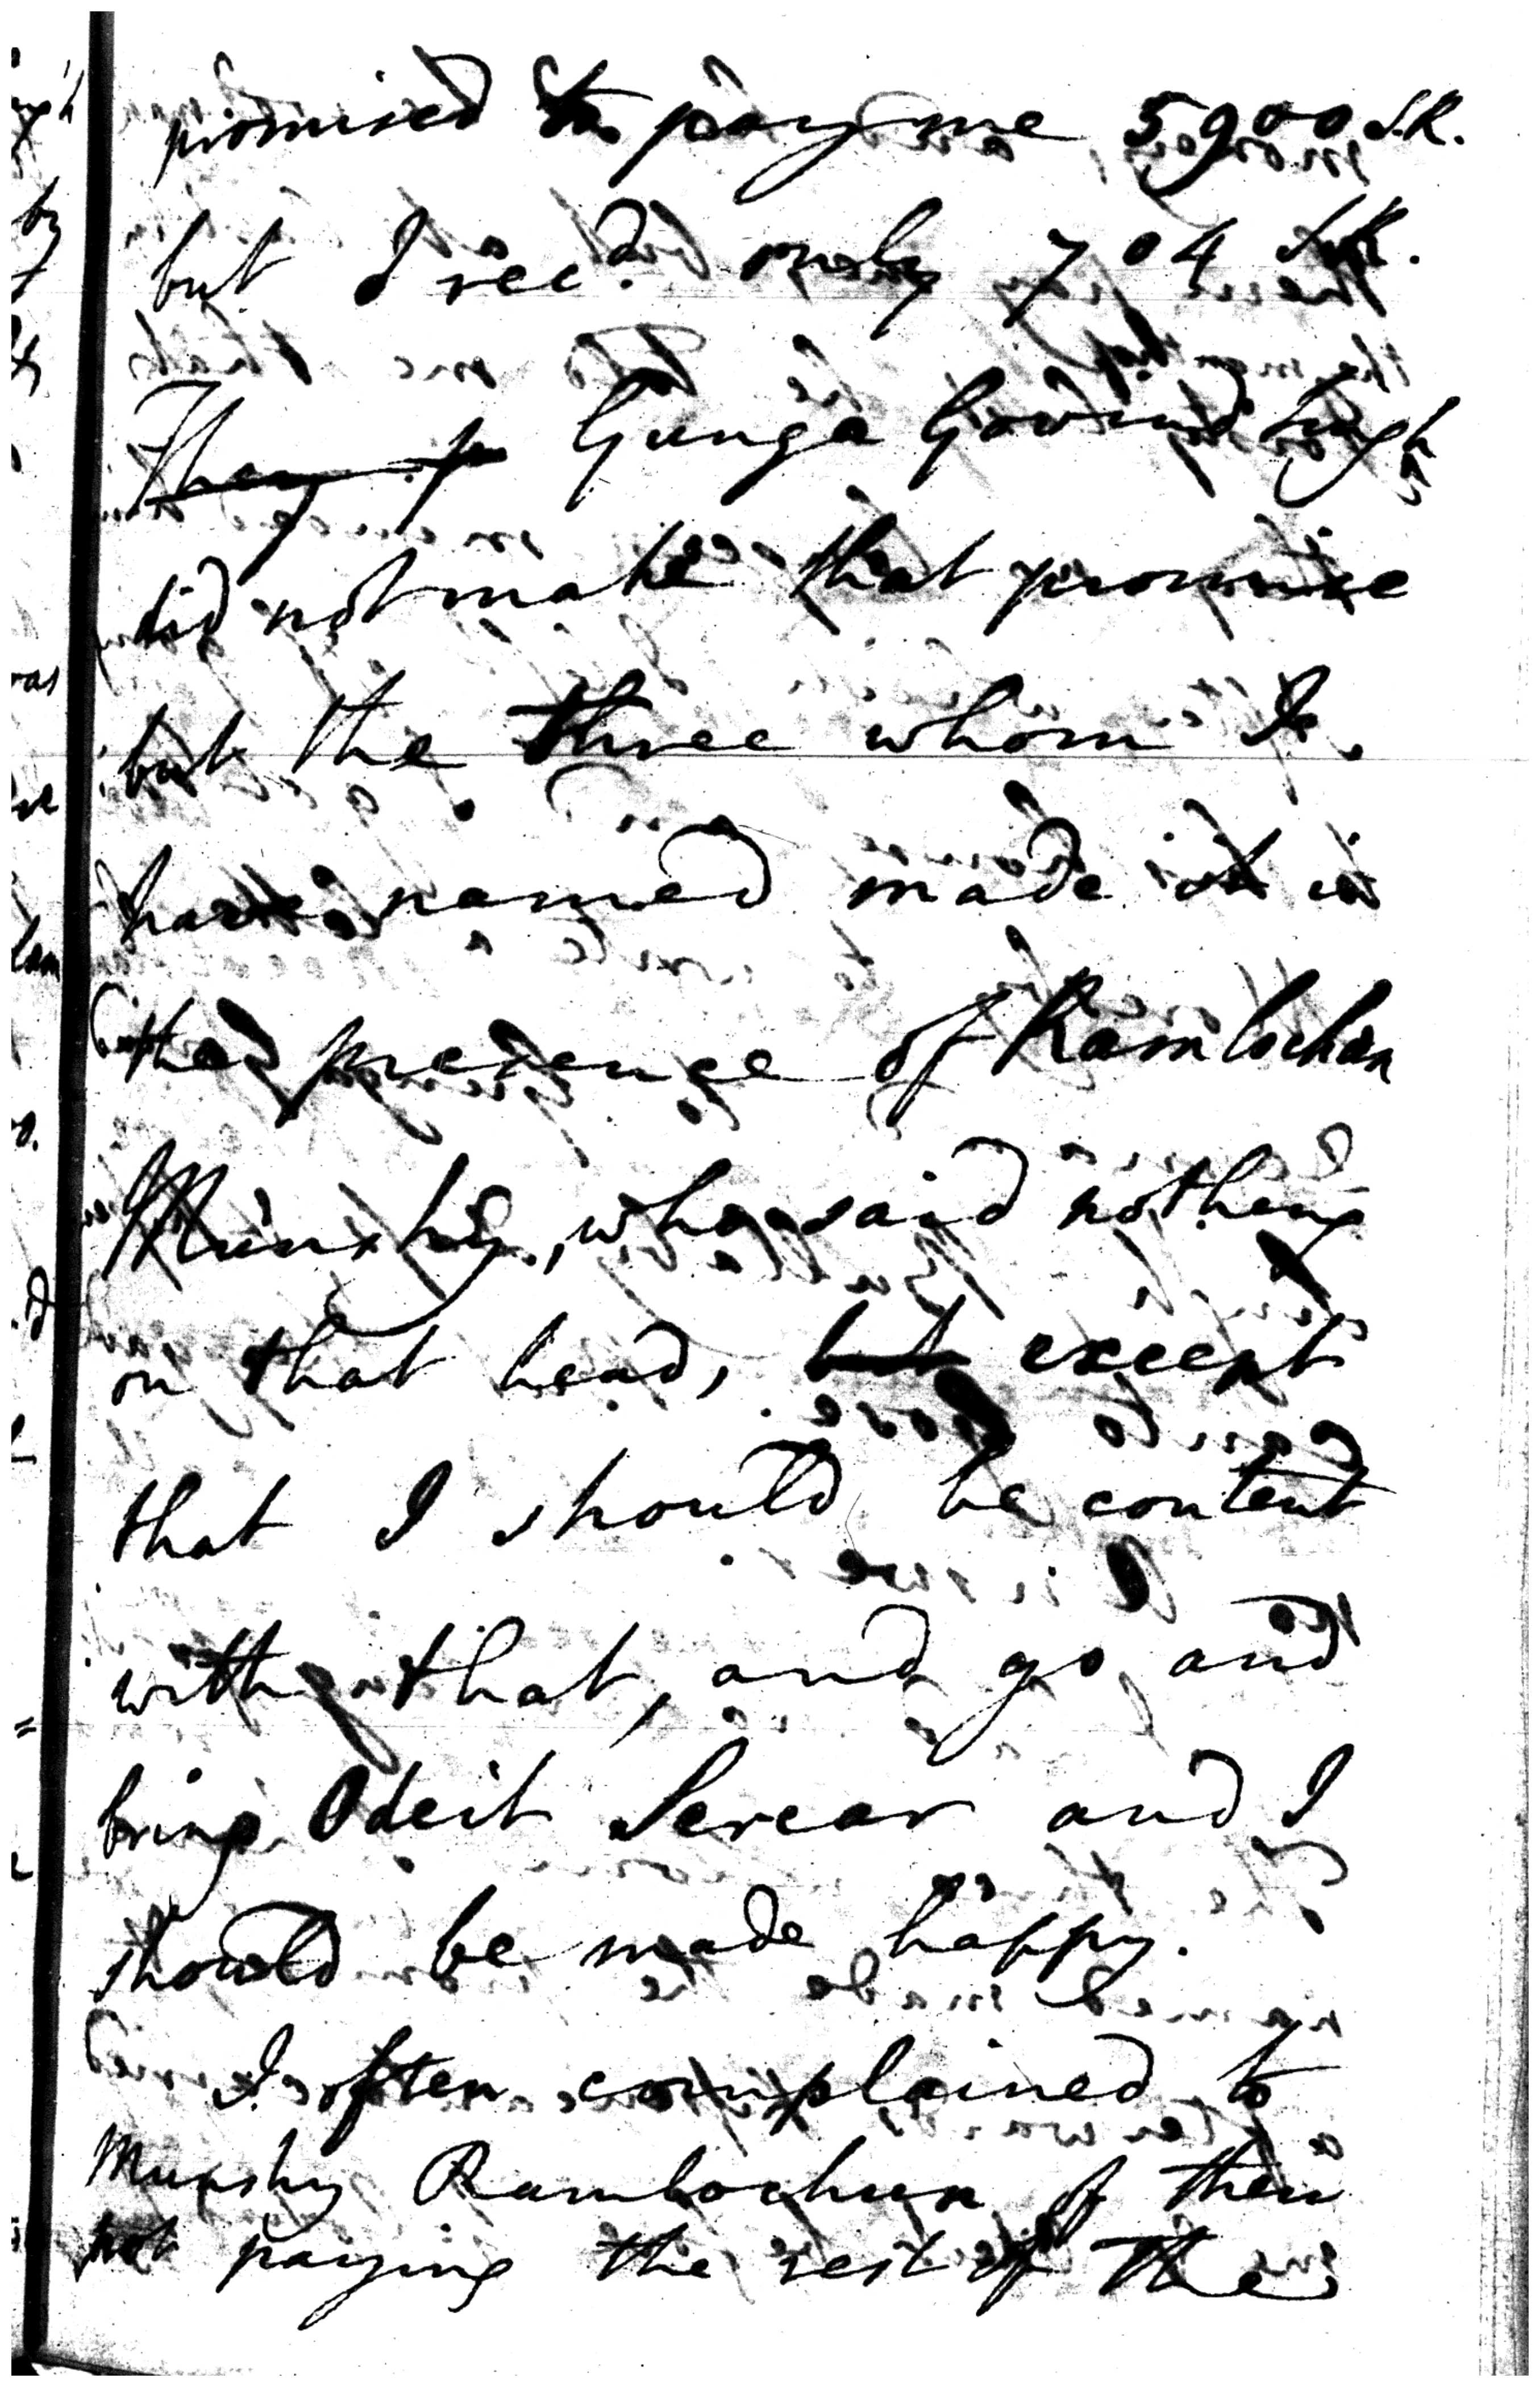 promised to pay me 5900 S.R.
but I recd. only 704 S.R.
They p Gunga Govind Singh
did not make that promise
but the three whom I
have named made it in
the presence of Ramlochan
Munshy, who said nothing
on that head, but except
that I should be content
with that, and go and
bring Odeit Sercar and I
should be made happy.
I often complained to
Munshy Ramlochun of their
not paying the rest of the